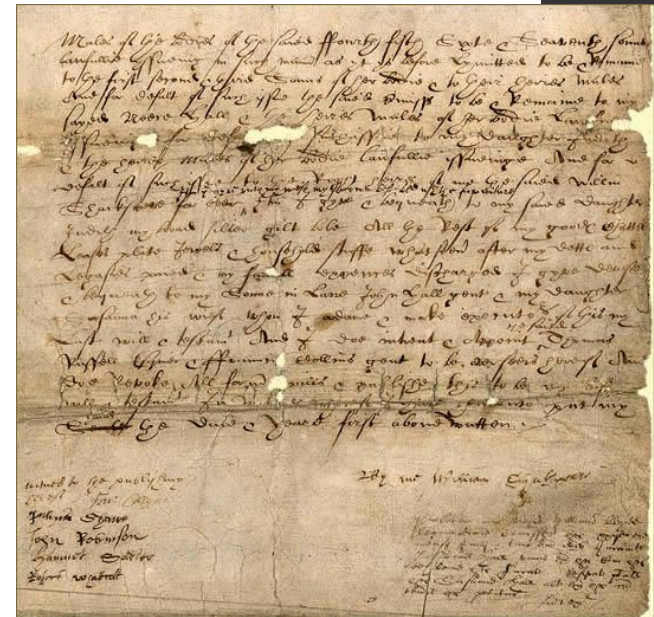 Males of the bodies of the saied ffourth fifth Sixte & Seaventh sonnes
lawfullie issueing in such manner as yt ys before Lymitted to be & Remaine
to the first second & third Sonns of her bodie & to their heires Males
And for defalt of such issue the saied premisses to be & Remaine to my
sayed Neece Hall & the heires Males of her bodie
for defalt of such issue to my daughter Judith
& the heires Males of her bodie lawfullie issueinge And for
defalt of such issue to the Right heires of me the saied William
Itm I gyve unto my wief my second best bed with the furniture
Shackspere for ever Itm I gyve & bequeath to my saied daughter
Judith my broad silver gilt bole All the Rest of my goodes Chattels
Leases plate Jewels & household stuffe whatsoever after my dettes and
Legasies paied & my funerall expences discharged I gyve devise
& bequeath to my Sonne in Lawe John Hall gent & my daughter
Susanna his wief whom I ordaine & make executors of this my
the saied
Last will & testament And I doe intreat & Appoint Thomas
Russell Esquier & ffrauncis Collins gent to be overseers hereof And
doe Revoke All former wills & publishe this to be my last
will & testament In witnes whereof I have hereunto put my
hand
Seale the daie & Yeare first above written
witnes to the publishing
hereof Fra: Collyns
Julyus Shawe
John Robinson
Hamnet Sadler
Robert Whattcott
By me William Shakspeare